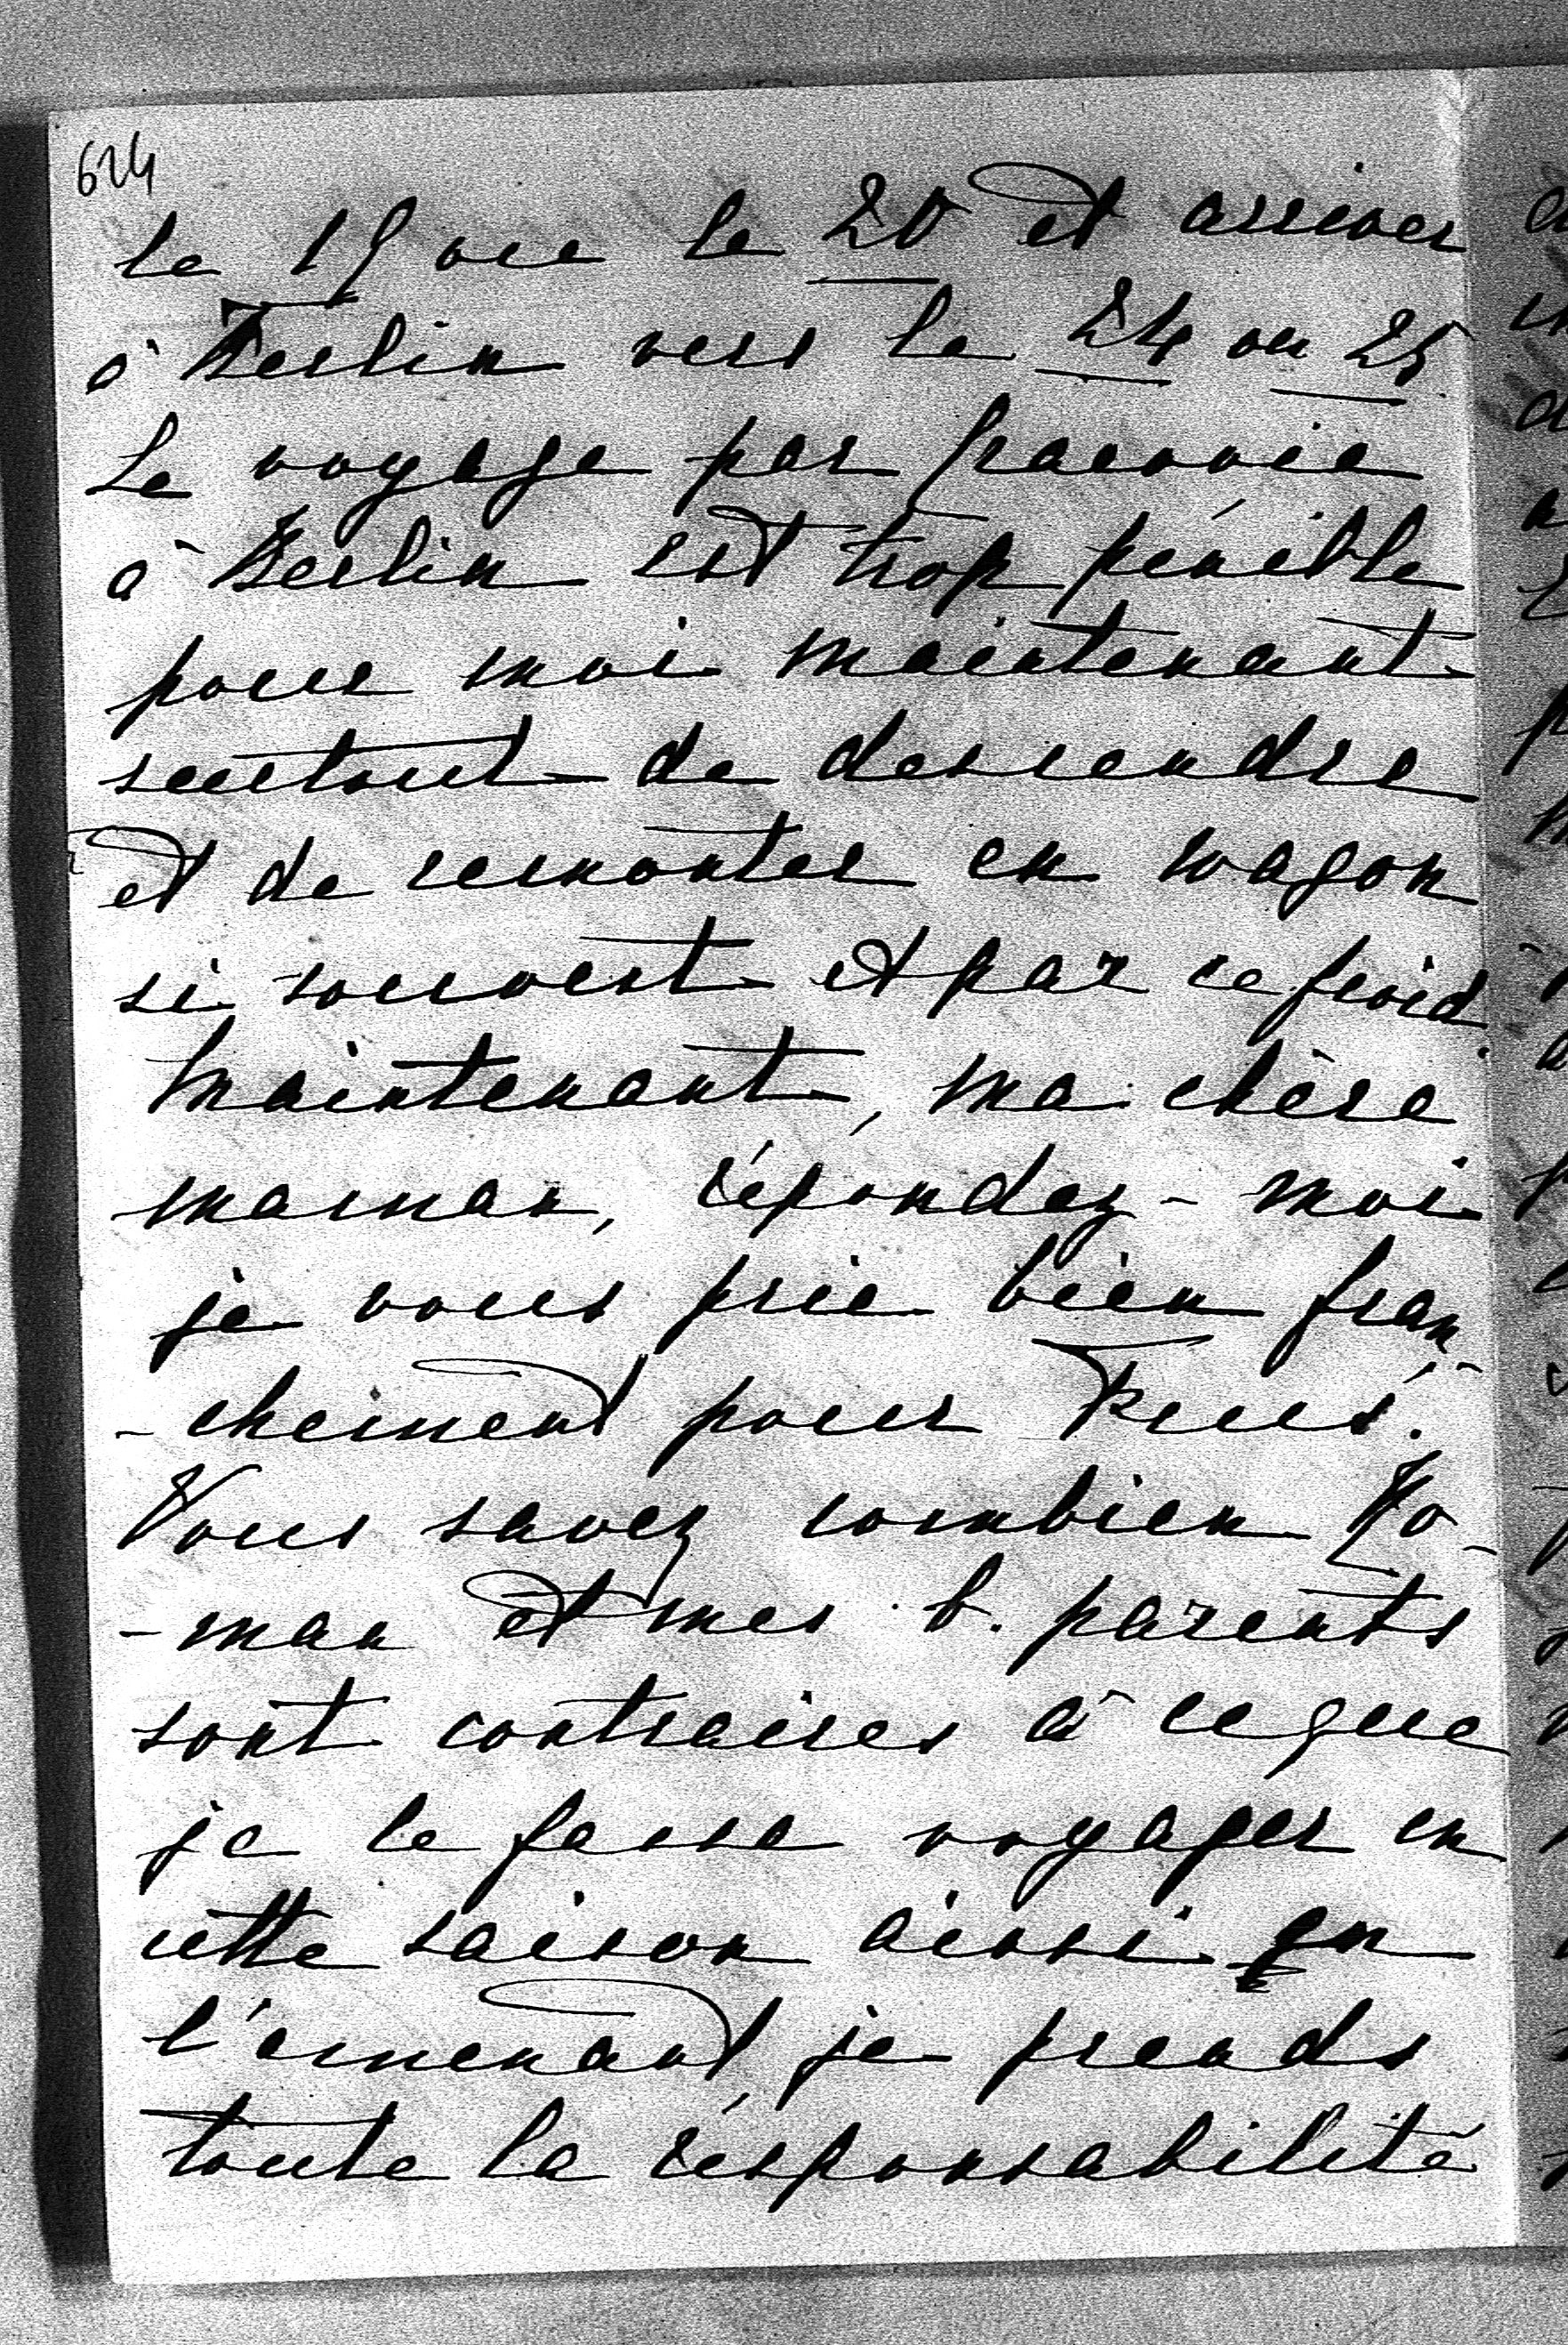 624
le 19 ou le 20 et arriver
à Berlin vers le 24 ou 25
Le voyage par Cracovie
à Berlin est trop pénible
pour moi maintenant
surtout de descendre
et de remonter en wagon
si souvent et par ce froid.
Maintenant, ma chère
maman, répondez-moi
je vous prie bien fran-
-chement pour
Vous savez combien Ro-
-man et mes b. parents
sont contraires à ce que
je le fasse voyager en
cette saison ainsi en
l'emenant je prends
toute la résponsabilité